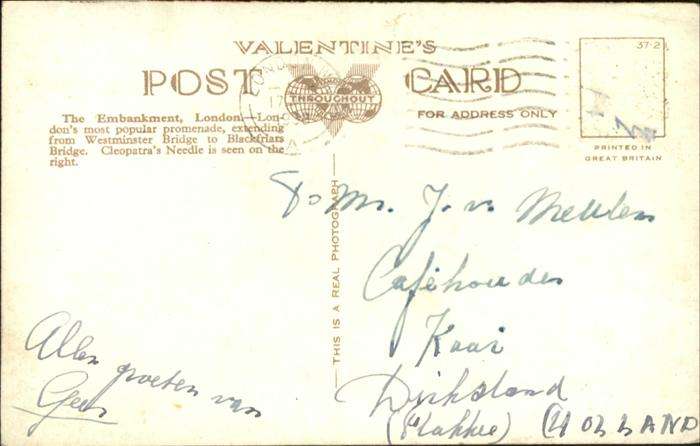 VALENTINE'S
POST CARD
THROUGHOUT
FOR ADDRESS ONLY
37-2
PRINTED IN
GREAT BRITAIN
The Embankment, London. Lon-
don's most popular promenade, extending
from Westminster Bridge to Blackfriars
Bridge. Cleopatra's Needle is seen on the
right.
THIS IS A REAL PHOTOGRAPH
To Mr. J. v. Meulen
Caféhouder
Kaai
Dirksland
(Flakkee) (HOLLAND
Allen groeten van
Geer